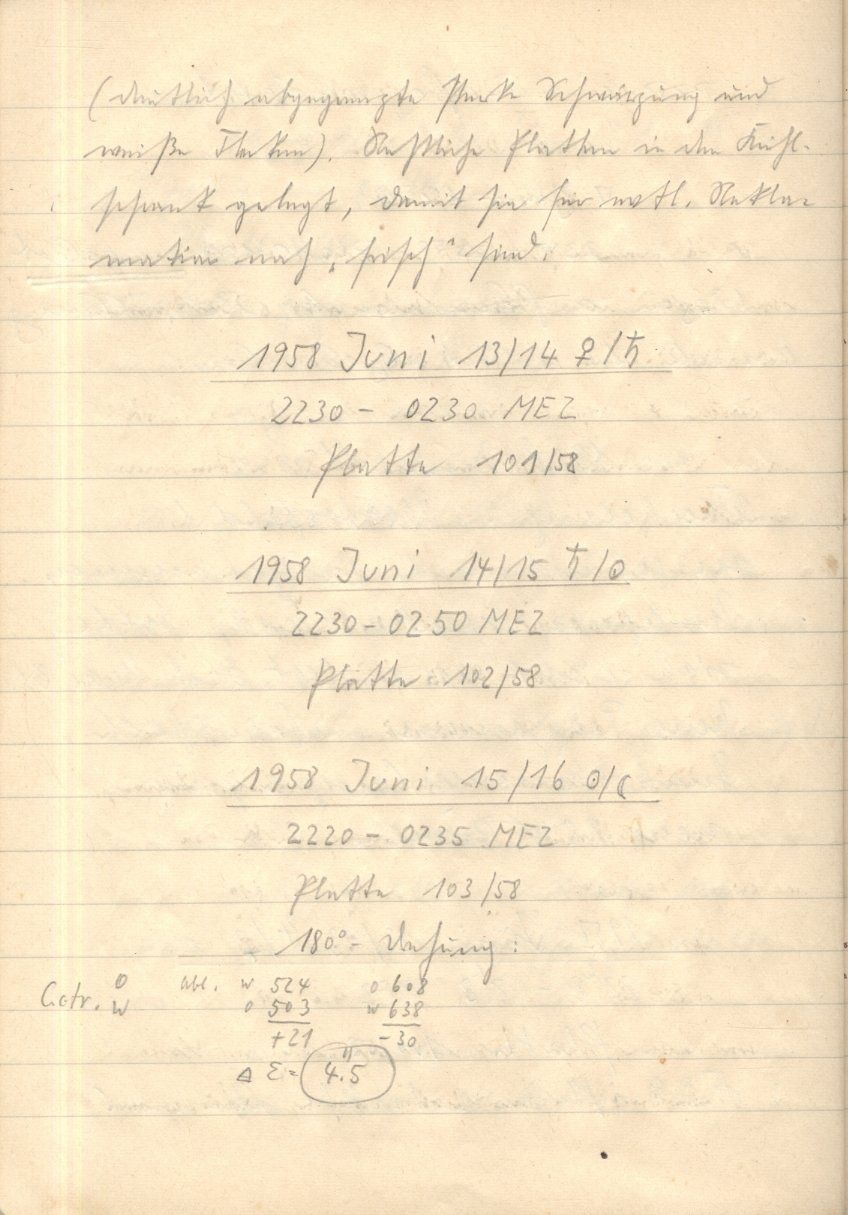 (deutlich abgegrenzte starke Schwärzung und
weiße Flecken). Restliche Platten in den Kühl-
schrank gelegt, damit sie für evtl. Rekla-
mation noch „frisch“ sind.
1958 Juni 13/14 ♀/♄
2230 - 0230 MEZ
Platte 101/58
1958 Juni 14/15 ♄/☉
2230 - 0250 MEZ
Platte 102/58
1958 Juni 15/16 ☉/☾
2220 - 0235 MEZ
Platte 103/58
180° - Drehung:
O Abl. W 524 O 608
W O 503 W 638
+21 -30
Δ Σ = 4".5